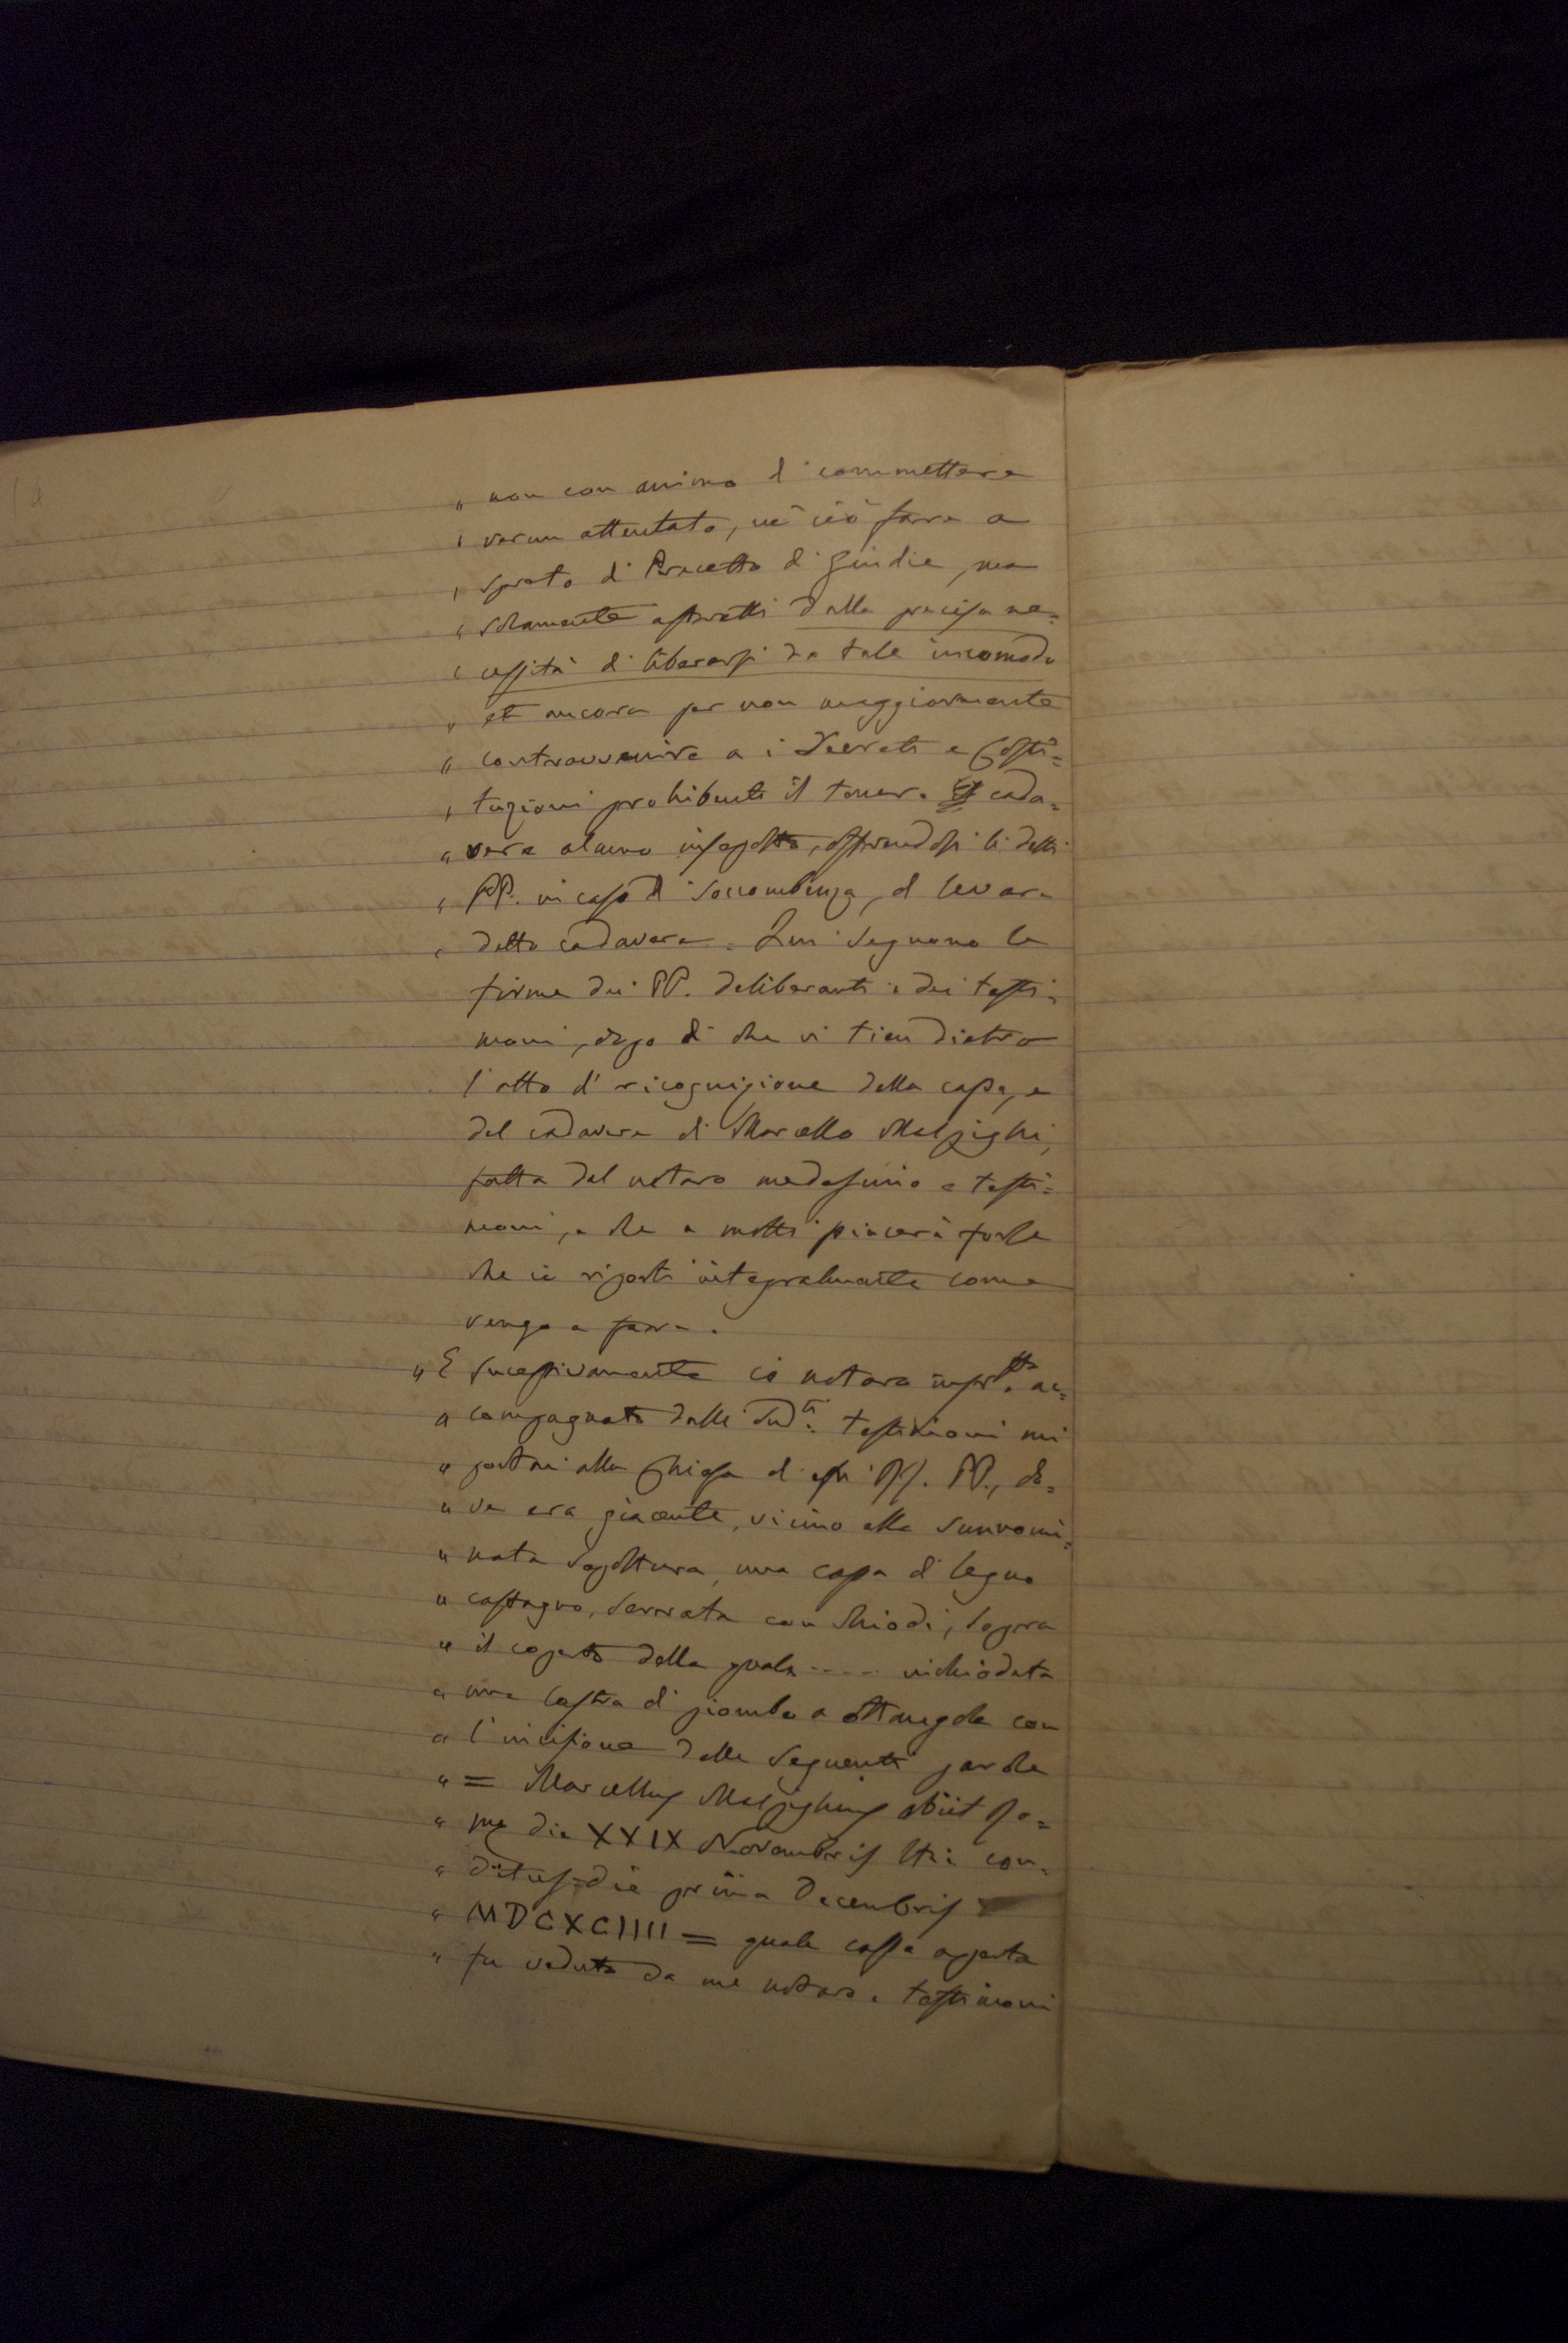 „ non con animo di commettere
„ verun attentato, nè ciò fare a
„ spreto di Precetto di Giudice, ma
„ solamente astretti dalla precisa ne=
„ cessità di liberarsi da tale incomodo
„ et ancora per non maggiormente
„ contravvenire a i Decreti e Costi=
„ tuzioni prohibenti il tener. cada=
„ vere alcuno insepolto, offrendosi li detti
„ PP. in caso di soccombenza, di levare
„ detto cadavere. Qui seguono le
firme dei PP. deliberanti e dei testi=
moni, dopo di che vi tien dietro
l'atto di ricognizione della cassa, e
del cadavere di Marcello Malpighi,
fatta dal notaro medesimo e testi=
moni, e che a molti piacerà forse
che io riporti integralmente come
vengo a fare.
„ E successivamente io notaro infr.tto ac=
„ compagnato dalli Sud.ti testimoni mi
„ portai alla Chiesa di essi PP., do=
„ ve era giacente, vicino alla sunnomi=
„ nata sepoltura, una cassa di legno
„ castagno, serrata con chiodi, sopra
„ il coperto della quale .... inchiodata
„ una lastra di piombo a ottangole con
„ l'incisione delle seguenti parole
„ = Marcellus Malpighius obiit Ro=
„ mę die XXIX Novembris con=
„ ditus die prima Decembris
„ MDCXCIIII = quale cassa aperta
„ fu veduta da me notaro e testimoni